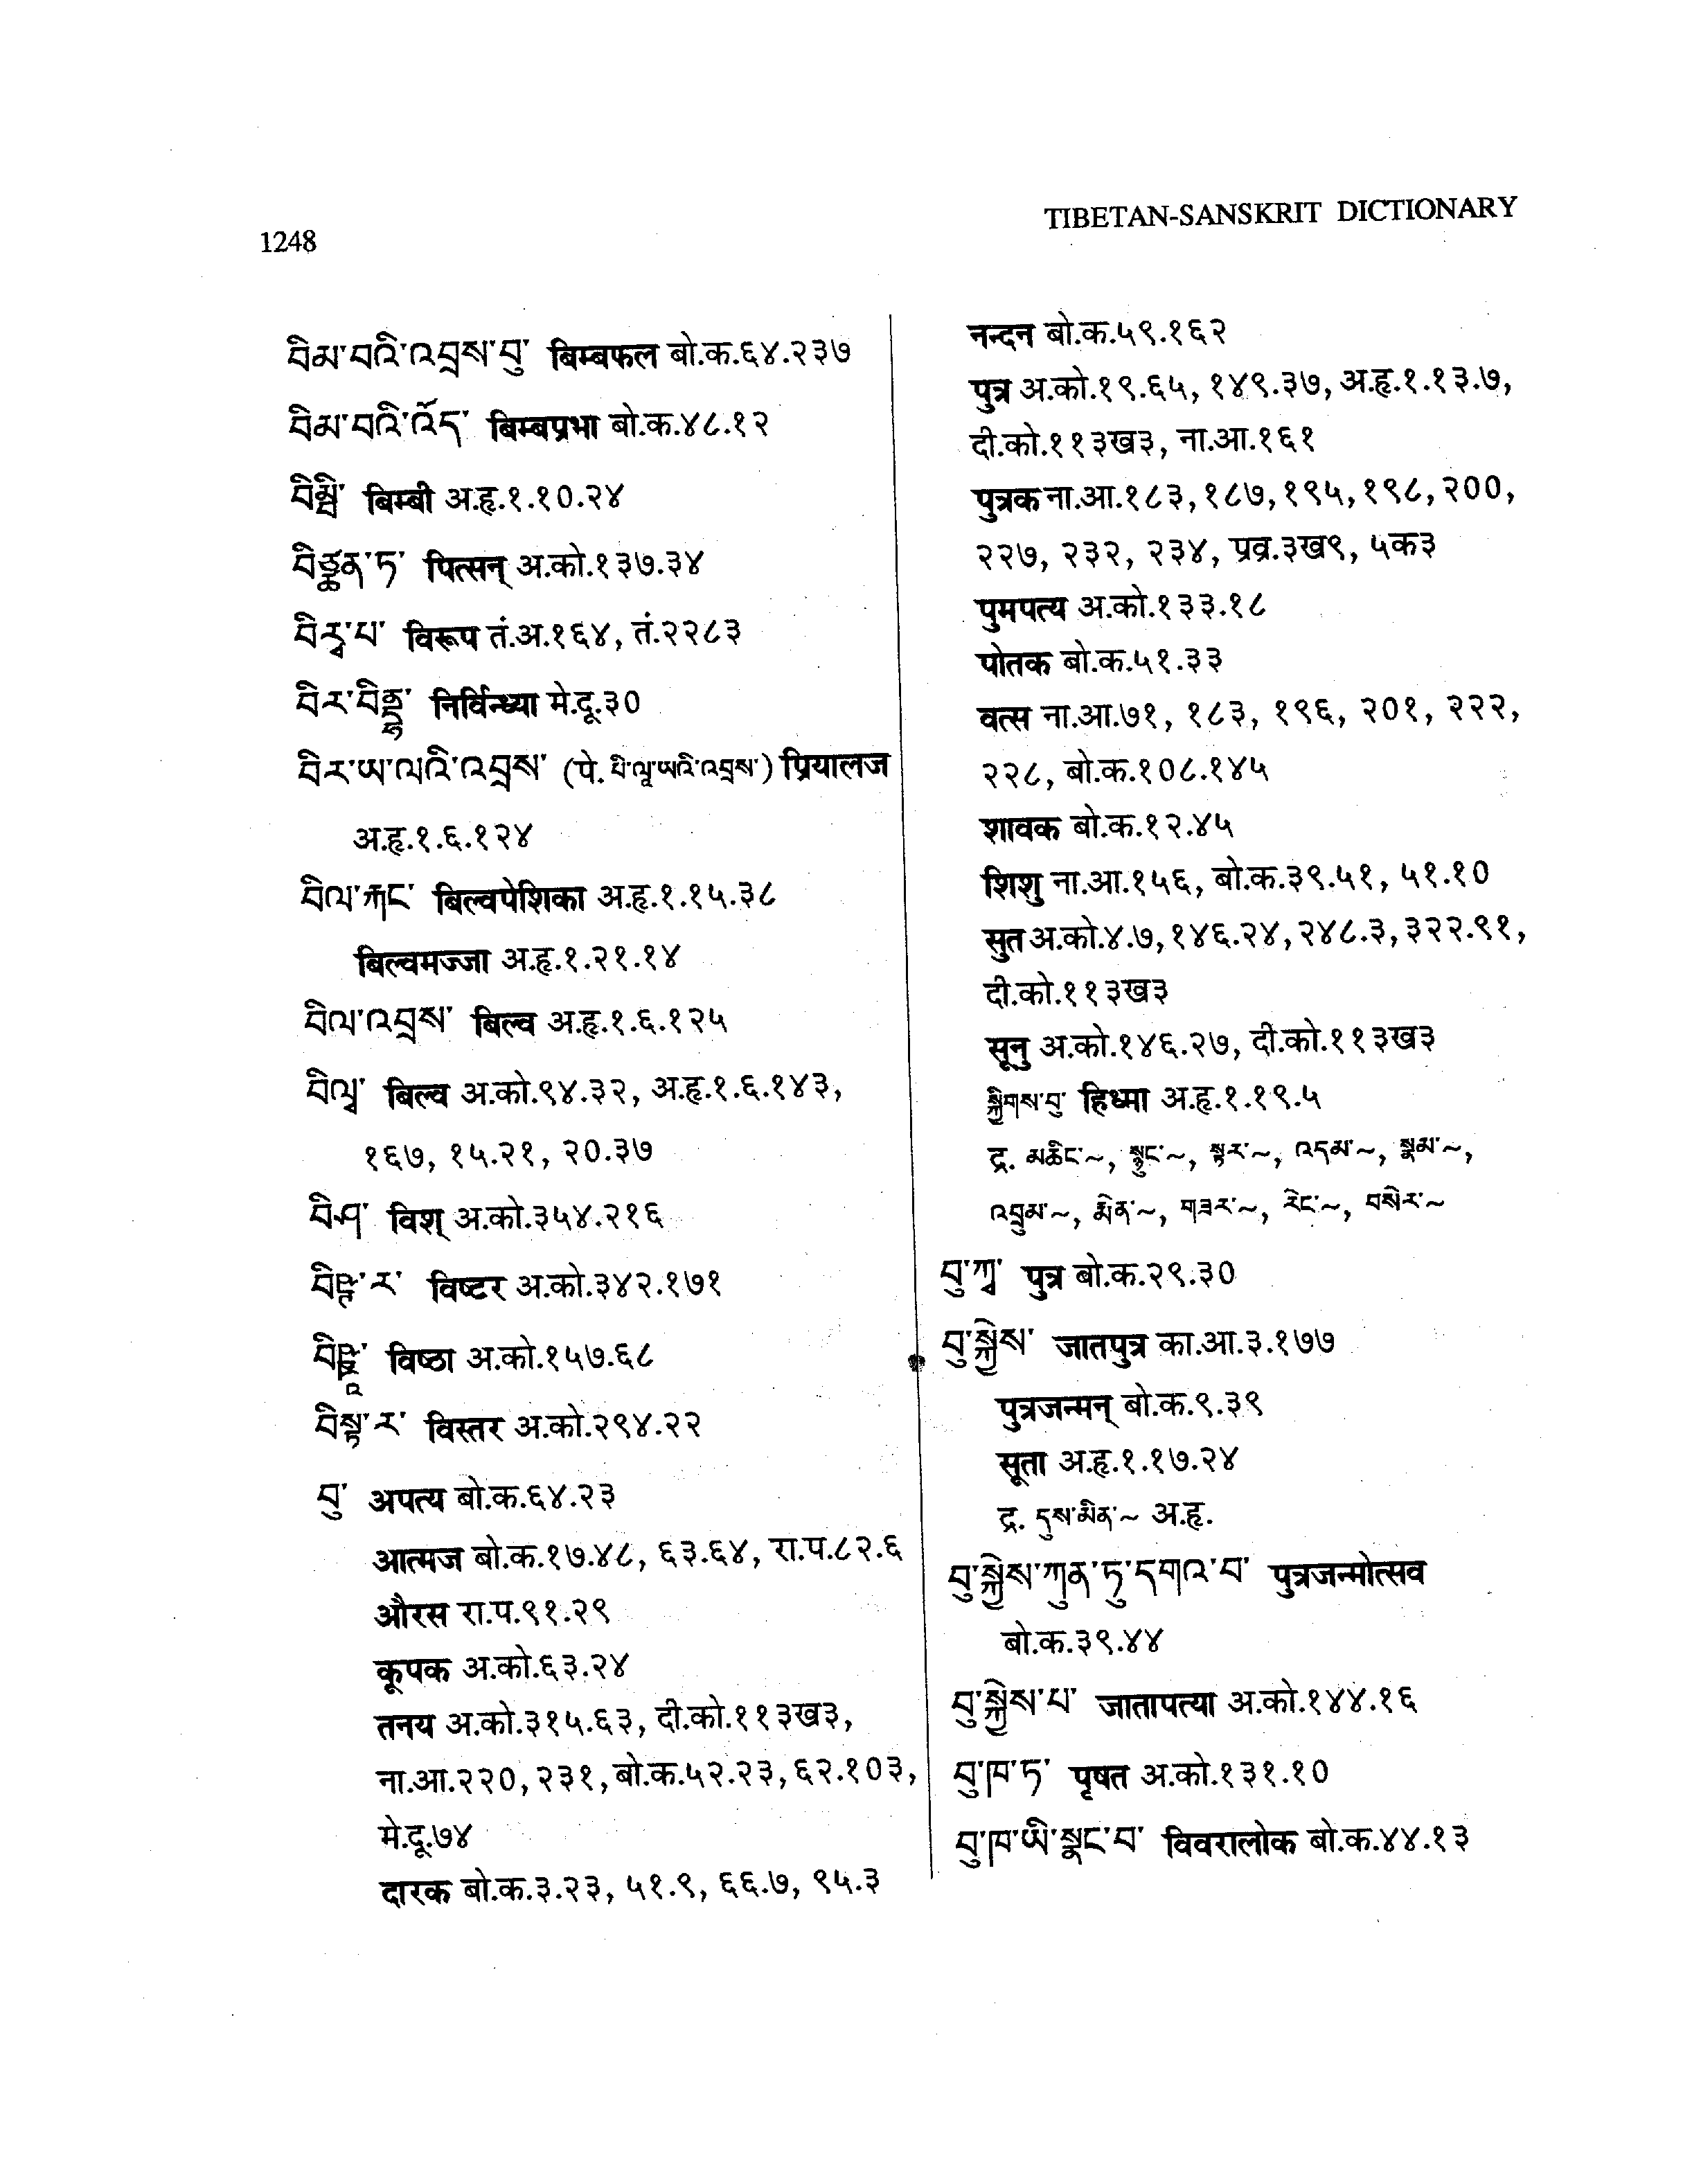 1248
TIBETAN-SANSKRIT DICTIONARY
བིམ་བའི་འབྲས་བུ་ बिम्बफल बो.क.६४.२३७
བིམ་བའི་འོད་ बिम्बप्रभा बो.क.४८.१२
བིམྦི་ बिम्बी अ.हृ.१.१०.२४
བིཙྪན་ཏ་ पित्सन् अ.को.१३७.३४
བིརྭ་པ་ विरूप तं.अ.१६४, तं.२२८३
བིར་བིནྡྷ་ निर्विन्ध्या मे.दू.३०
བིར་ཡ་ལའི་འབྲས་ (पे. པི་ལཱ་ཡའི་འབྲས་) प्रियालज
अ.हृ.१.६.१२४
བིལ་རྐང་ बिल्वपेशिका अ.हृ.१.१५.३८
बिल्वमज्जा अ.हृ.१.२१.१४
བིལ་འབྲས་ बिल्व अ.हृ.१.६.१२५
བིལྭ་ बिल्व अ.को.९४.३२, अ.हृ.१.६.१४३,
१६७, १५.२१, २०.३७
བི་ཤ་ विश् अ.को.३५४.२१६
བིཥྚ་ར་ विष्टर अ.को.३४२.१७१
བིཥྛཱ་ विष्ठा अ.को.१५७.६८
བིསྟ་ར་ विस्तर अ.को.२९४.२२
བུ་ अपत्य बो.क.६४.२३
आत्मज बो.क.१७.४८, ६३.६४, रा.प.८२.६
औरस रा.प.९१.२९
कूपक अ.को.६३.२४
तनय अ.को.३१५.६३, दी.को.११३ख३,
ना.आ.२२०, २३१, बो.क.५२.२३, ६२.१०३,
मे.दू.७४
दारक बो.क.३.२३, ५१.९, ६६.७, ९५.३
नन्दन बो.क.५९.१६२
पुत्र अ.को.१९.६५, १४९.३७, अ.हृ.१.१३.७,
दी.को.११३ख३, ना.आ.१६१
पुत्रक ना.आ.१८३, १८७, १९५, १९८, २००,
२२७, २३२, २३४, प्रव्र.३ख९, ५क३
पुमपत्य अ.को.१३३.१८
पोतक बो.क.५१.३३
वत्स ना.आ.७१, १८३, १९६, २०१, २२२,
२२८, बो.क.१०८.१४५
शावक बो.क.१२.४५
शिशु ना.आ.१५६, बो.क.३९.५१, ५१.१०
सुत अ.को.४.७, १४६.२४, २४८.३, ३२२.९१,
दी.को.११३ख३
सूनु अ.को.१४६.२७, दी.को.११३ख३
སྐྱིགས་བུ་ हिध्मा अ.हृ.१.१९.५
द्र. མཆིང་~, སྙུང་~, སྟར་~, འདམ་~, སྣམ་~,
འབྲུམ་~, སྨིན་~, གཟར་~, རེང་~, བསེར་~
བུ་ཀྭ་ पुत्र बो.क.२९.३०
བུ་སྐྱེས་ जातपुत्र का.आ.३.१७७
पुत्रजन्मन् बो.क.९.३९
सूता अ.हृ.१.१७.२४
द्र. དུས་མིན་~ अ.हृ.
བུ་སྐྱེས་ཀུན་ཏུ་དགའ་བ་ पुत्रजन्मोत्सव
बो.क.३९.४४
བུ་སྐྱེས་པ་ जातापत्या अ.को.१४४.१६
བུ་ཁ་ཏ་ पृषत अ.को.१३१.१०
བུ་ཁ་ཡི་སྣང་བ་ विवरालोक बो.क.४४.१३